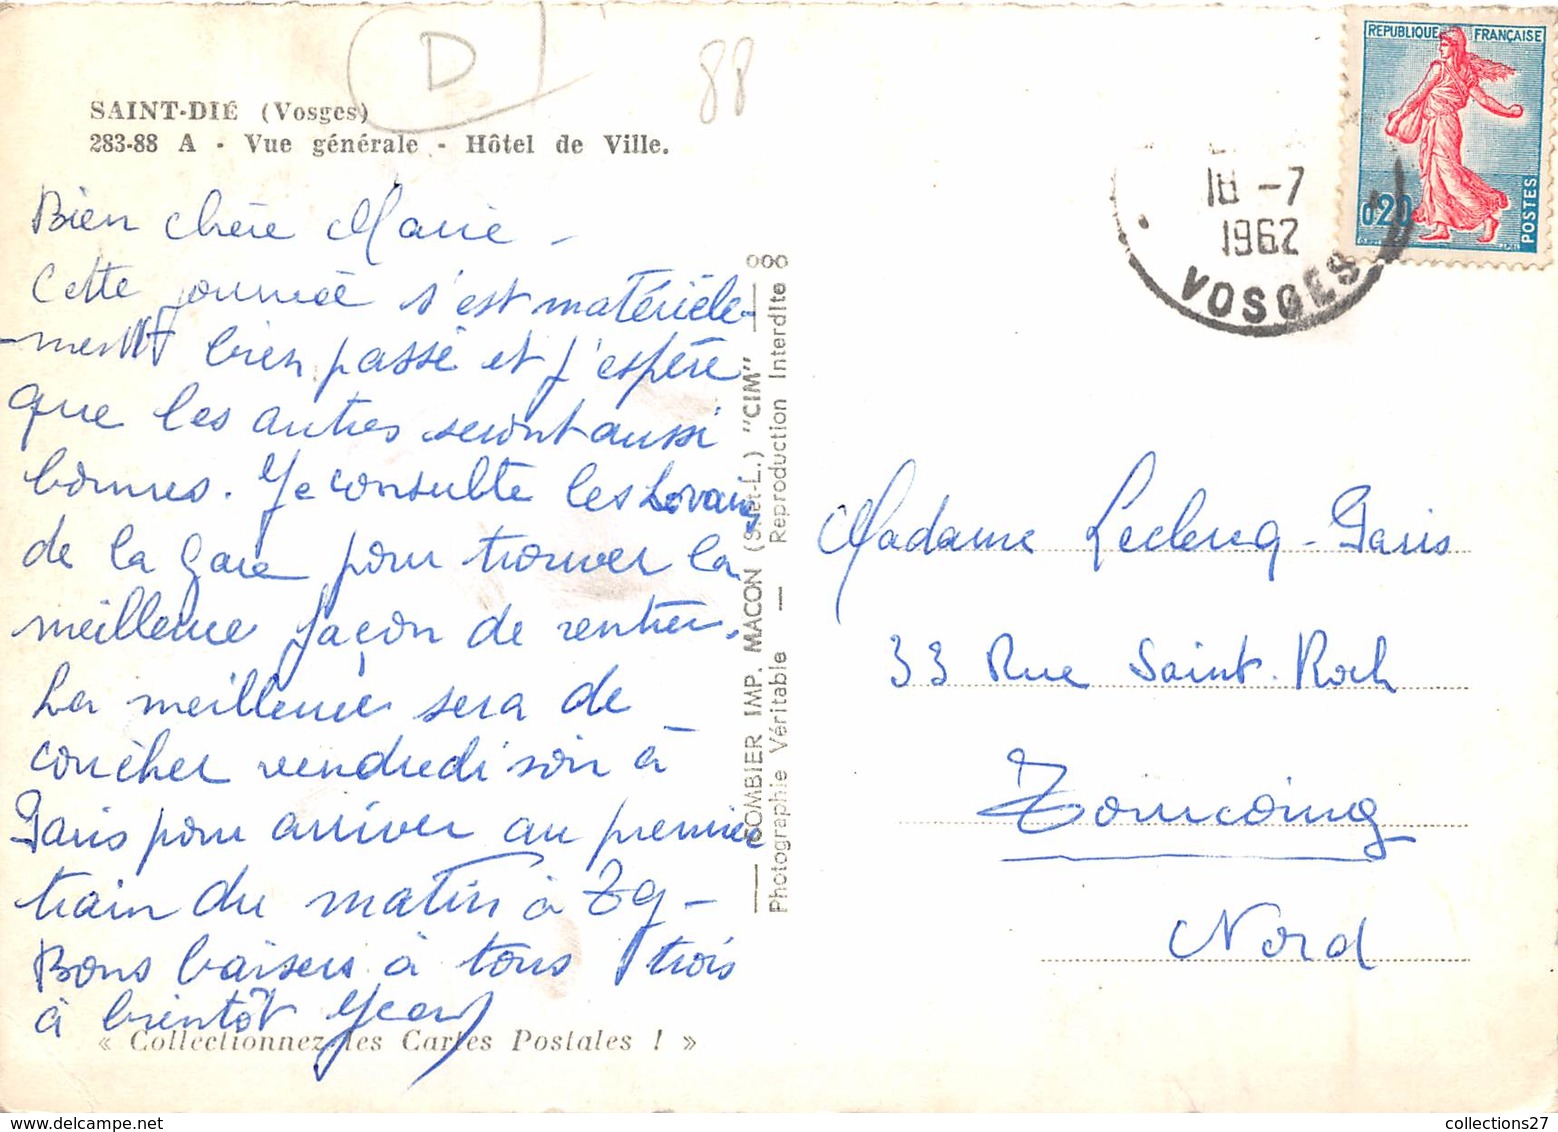 D
88
SAINT-DIÉ (Vosges)
283-88 A - Vue générale - Hôtel de Ville.
Bien chère Marie -
Cette journée s'est matérièle-
-ment bien passé et j'espère
que les autres seront aussi
bonnes. Je consulte les horaires
de la gare pour trouver la
meilleure façon de rentrer.
La meilleure sera de
coucher vendredi soir à
Paris pour arriver au premier
train du matin à Tg -
Bons baisers à tous trois
à bientôt Jean
« Collectionnez les Cartes Postales ! »
COMBIER IMP. MACON (S.-et-L.) "CIM"
Photographie Véritable — Reproduction Interdite
REPUBLIQUE FRANÇAISE
0,20
POSTES
18 -7
1962
VOSGES
Madame Leclercq-Paris
33 Rue Saint-Roch
Tourcoing
Nord
collections27